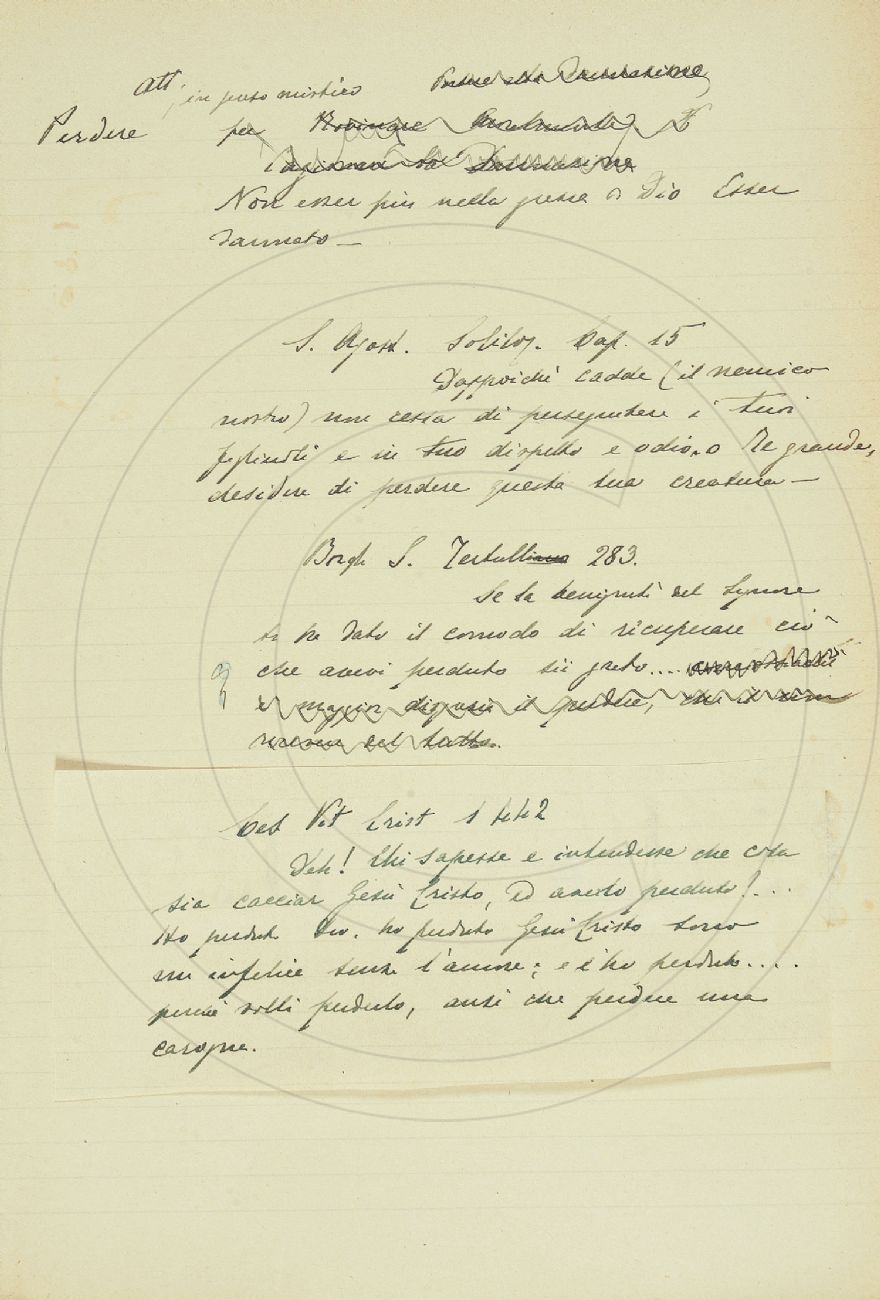 Att. in senso mistico
Perdere per Rovinare Moralmente, E
Cagionar la Dannazione
Non esser più nella grazia di Dio Esser
dannato —
S. Agost. Soliloq. Cap. 15
Dappoichè cadde (il nemico
nostro) non cessa di perseguitare i tuoi
figliuoli e in tuo dispetto e odio, o Re grande,
desidera di perdere questa tua creatura —
Borgh S. Tertull 283.
Se la benignità del Signore
ti ha dato il comodo di ricuperare ciò
che avevi perduto sii grato....
il perdere, che il non
ricever del tutto.
Ces Vit Crist 1 442
Deh! Chi sapesse e intendesse che cosa
sia cacciar Gesù Cristo, ed averlo perduto!...
Ho perduto Dio. ho perduto Gesù Cristo sono
un infelice senza l'amore; e l'ho perduto....
perchè volli perderlo, anzi che perdere una
carogna.